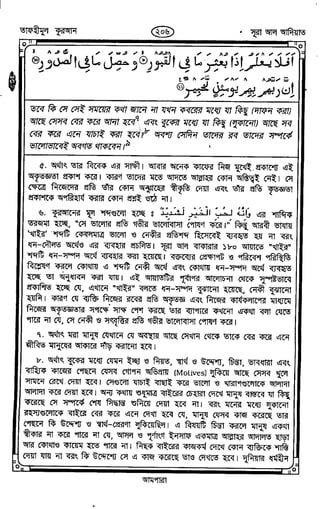 তাফহীমুল কুরআন ২০৬ সূরা আল আদিয়াত
أَفَلَا يَعْلَمُ إِذَا بُعْثِرَ مَا فِي الْقُبُورِ ۝ وَحُصِّلَ مَا فِي الصُّدُورِ ۝
إِنَّ رَبَّهُم بِهِمْ يَوْمَئِذٍ لَّخَبِيرٌ ۝
তবে কি সে সেই সময়ের কথা জানে না যখন কবরের মধ্যে যা কিছু (দাফন করা)
আছে সেসব বের করে আনা হবে এবং বুকের মধ্যে যা কিছু (লুকানো) আছে সব
বের করে এনে যাচাই করা হবে? অবশ্য সেদিন তাদের রব তাদের সম্পর্কে
ভালোভাবেই অবগত থাকবেন।
৫. অর্থাৎ তার বিবেক এর সাক্ষী। আবার অনেক কাফের নিজ মুখেই প্রকাশ্যে এই
অকৃতজ্ঞতা প্রকাশ করে। কারণ তাদের মতে আদতে আল্লাহর কোন অস্তিত্বই নেই। সে
ক্ষেত্রে নিজেদের প্রতি তাঁর কোন অনুগ্রহের স্বীকৃতি দেয়া এবং তাঁর প্রতি কৃতজ্ঞতা
প্রকাশকে অপরিহার্য করার কোন প্রশ্নই ওঠে না।
৬. কুরআনের মূল শব্দগুলো হচ্ছে : وَإِنَّهُ لِحُبِّ الْخَيْرِ لَشَدِيدٌ এর শাব্দিক
তরজমা হচ্ছে, "সে ভালোর প্রতি গভীর ভালোবাসা পোষণ করে।" কিন্তু আরবী ভাষায়
"খাইর" শব্দটি কেবলমাত্র ভালো ও নেকীর প্রতিশব্দ হিসেবেই ব্যবহৃত হয় না বরং
ধন-দৌলত অর্থেও এর ব্যবহার প্রচলিত। সূরা আল বাকারার ১৮০ আয়াতে "খাইর"
শব্দটি ধন-সম্পদ অর্থে ব্যবহার করা হয়েছে। বক্তব্যের প্রেক্ষাপট ও পরিবেশ পরিস্থিতি
বিশ্লেষণ করলে কোথায় এ শব্দটি নেকী অর্থে এবং কোথায় ধন-সম্পদ অর্থে ব্যবহৃত
হচ্ছে তা অনুধাবন করা যায়। এই আয়াতটির পূর্বাপর আলোচনা থেকে সুস্পষ্টভাবে
প্রকাশিত হচ্ছে যে, এখানে "খাইর" বলতে ধন-সম্পদ বুঝানো হয়েছে, নেকী বুঝানো
হয়নি। কারণ যে ব্যক্তি নিজের রবের প্রতি অকৃতজ্ঞ এবং নিজের কার্যকলাপের মাধ্যমে
নিজের অকৃতজ্ঞতার সপক্ষে সাক্ষ্য পেশ করছে তার ব্যাপারে কখনো একথা বলা যেতে
পারে না যে, সে নেকী ও সৎবৃত্তির প্রতি গভীর ভালোবাসা পোষণ করে।
৭. অর্থাৎ মরা মানুষ যেখানে যে অবস্থায় আছে সেখান থেকে তাকে বের করে এনে
জীবিত মানুষের আকারে দাঁড় করানো হবে।
৮. অর্থাৎ বুকের মধ্যে যেসব ইচ্ছা ও নিয়ত, স্বার্থ ও উদ্দেশ্য, চিন্তা, ভাবধারা এবং
বাহ্যিক কাজের পেছনে যেসব গোপন অভিপ্রায় (Motives) লুকিয়ে আছে সেসব খুলে
সামনে রেখে দেয়া হবে। সেগুলো যাচাই বাছাই করে ভালো ও খারাপগুলোকে আলাদা
আলাদা করে দেয়া হবে। অন্য কথায় শুধুমাত্র বাইরের চেহারা দেখে মানুষ বাস্তবে যা কিছু
করেছে সে সম্পর্কে শেষ সিদ্ধান্ত শুনিয়ে দেয়া হবে না। বরং মনের মধ্যে লুকানো
রহস্যগুলোকে বাইরে বের করে এনে দেখা হবে যে, মানুষ যেসব কাজ করেছে তার
পেছনে কি উদ্দেশ্য ও স্বার্থ-প্রেরণা লুকিয়েছিল। এ বিষয়টি চিন্তা করলে মানুষ একথা
স্বীকার না করে পারে না যে, আসল ও পূর্ণাংগ ইনসাফ একমাত্র আল্লাহর আদালত ছাড়া
আর কোথাও কায়েম হতে পারে না। নিছক বাইরের কাজকর্ম দেখে কোন ব্যক্তিকে শাস্তি
দেয়া যায় না বরং কি উদ্দেশ্যে সে এ কাজ করেছে তাও দেখতে হবে। দুনিয়ার ধর্মহীন
আমপারা